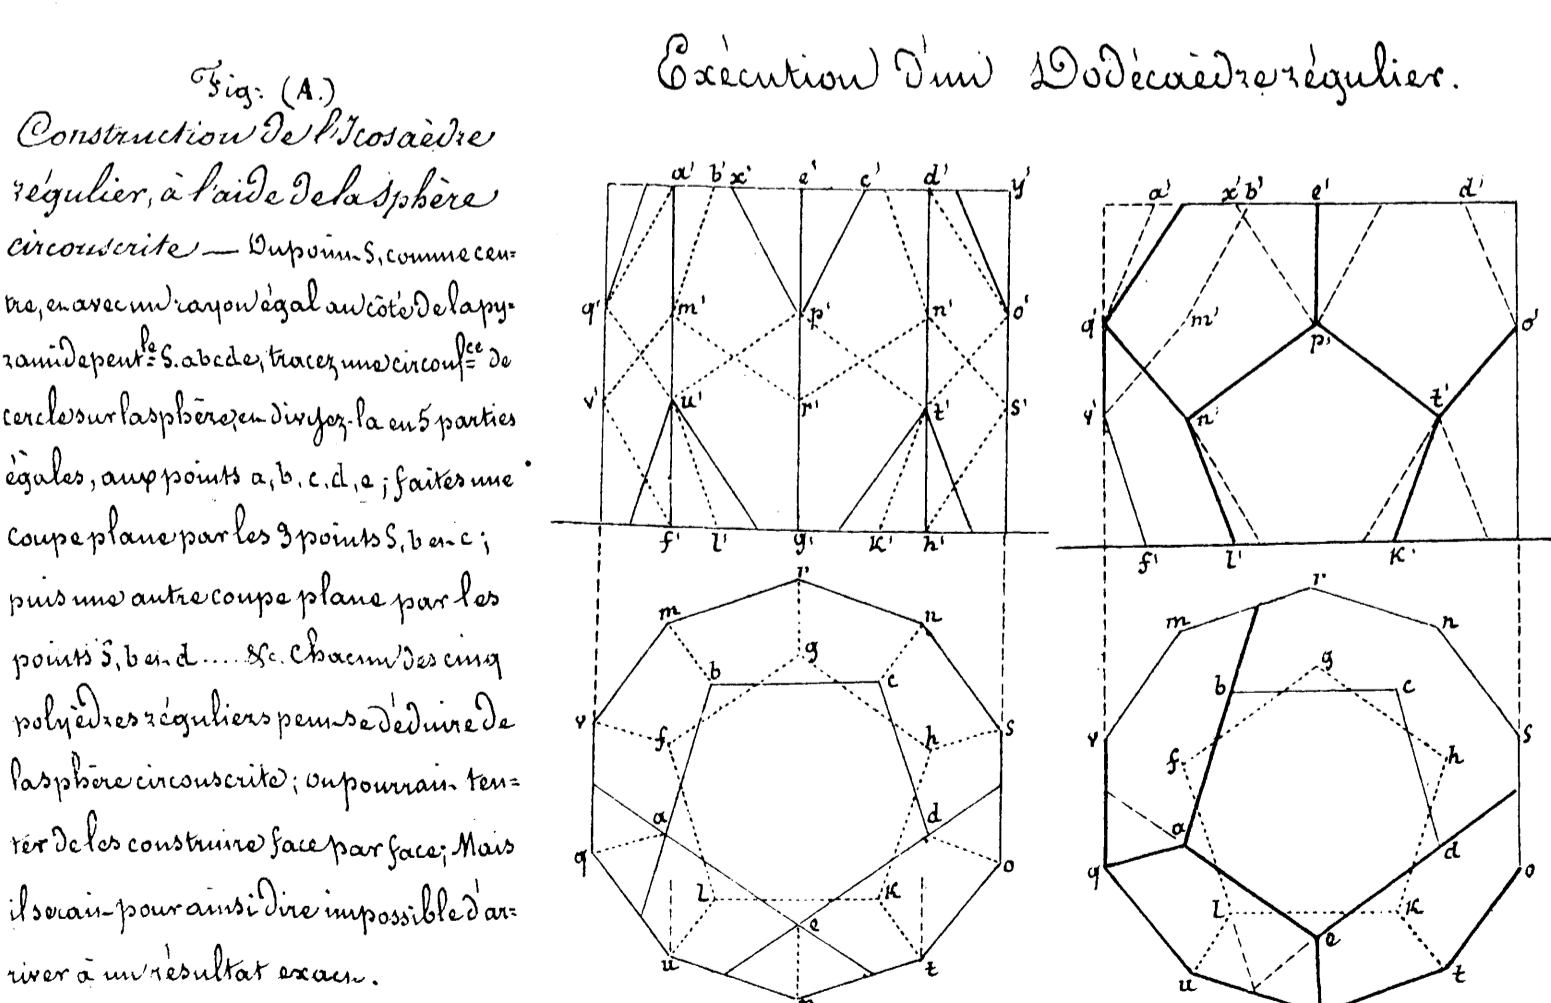 Fig: (A.)
Construction de l'Icosaèdre
régulier, à l'aide de la sphère
circonscrite — Du point S, comme cen=
tre, et avec un rayon égal au côté de la py=
ramide pent.le S.abcde, tracez une circonf.ce de
cercle sur la sphère, et divisez-la en 5 parties
égales, aux points a, b, c, d, e ; faites une
coupe plane par les 3 points S, b et c ;
puis une autre coupe plane par les
points S, b et d .... &c. Chacun des cinq
polyèdres réguliers peut se déduire de
la sphère circonscrite ; on pourrait ten=
ter de les construire face par face ; Mais
il serait pour ainsi dire impossible d'ar=
river à un résultat exact.
Exécution d'un Dodécaèdre régulier.
a' b' x' e' c' d' y'
q' m' p' n' o'
v' u' r' t' s'
f' l' g' k' h'
r
m n
g
b c
v f h s
a d
q o
l k
e
u t
p
a' x' b' e' d'
q' m' p' o'
v' n' t'
f' l' k'
r
m n
g
b c
v f h s
a d
q o
l k
e
u t